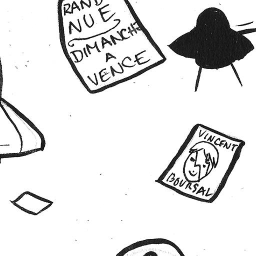 RAND
NUE
DIMANCHE
A
VENCE
VINCENT
BOURSAL